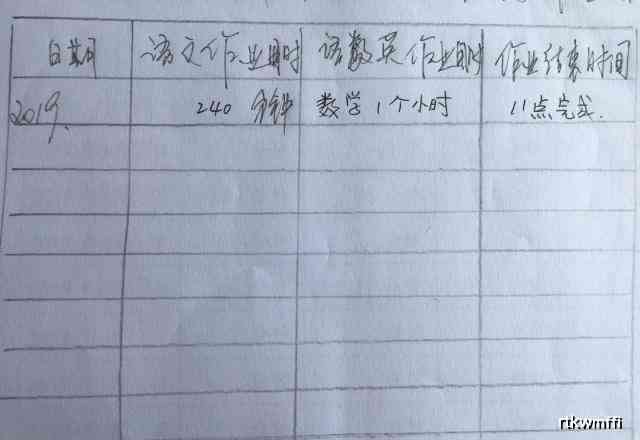 日期 语文作业用时 语数英作业用时 作业结束时间
2019. 240 分钟 数学1个小时 11点完成.
rtkwmffi